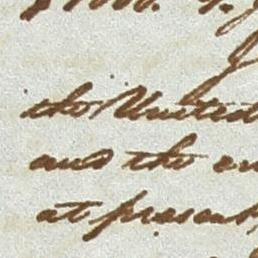 the United
and the en
at present